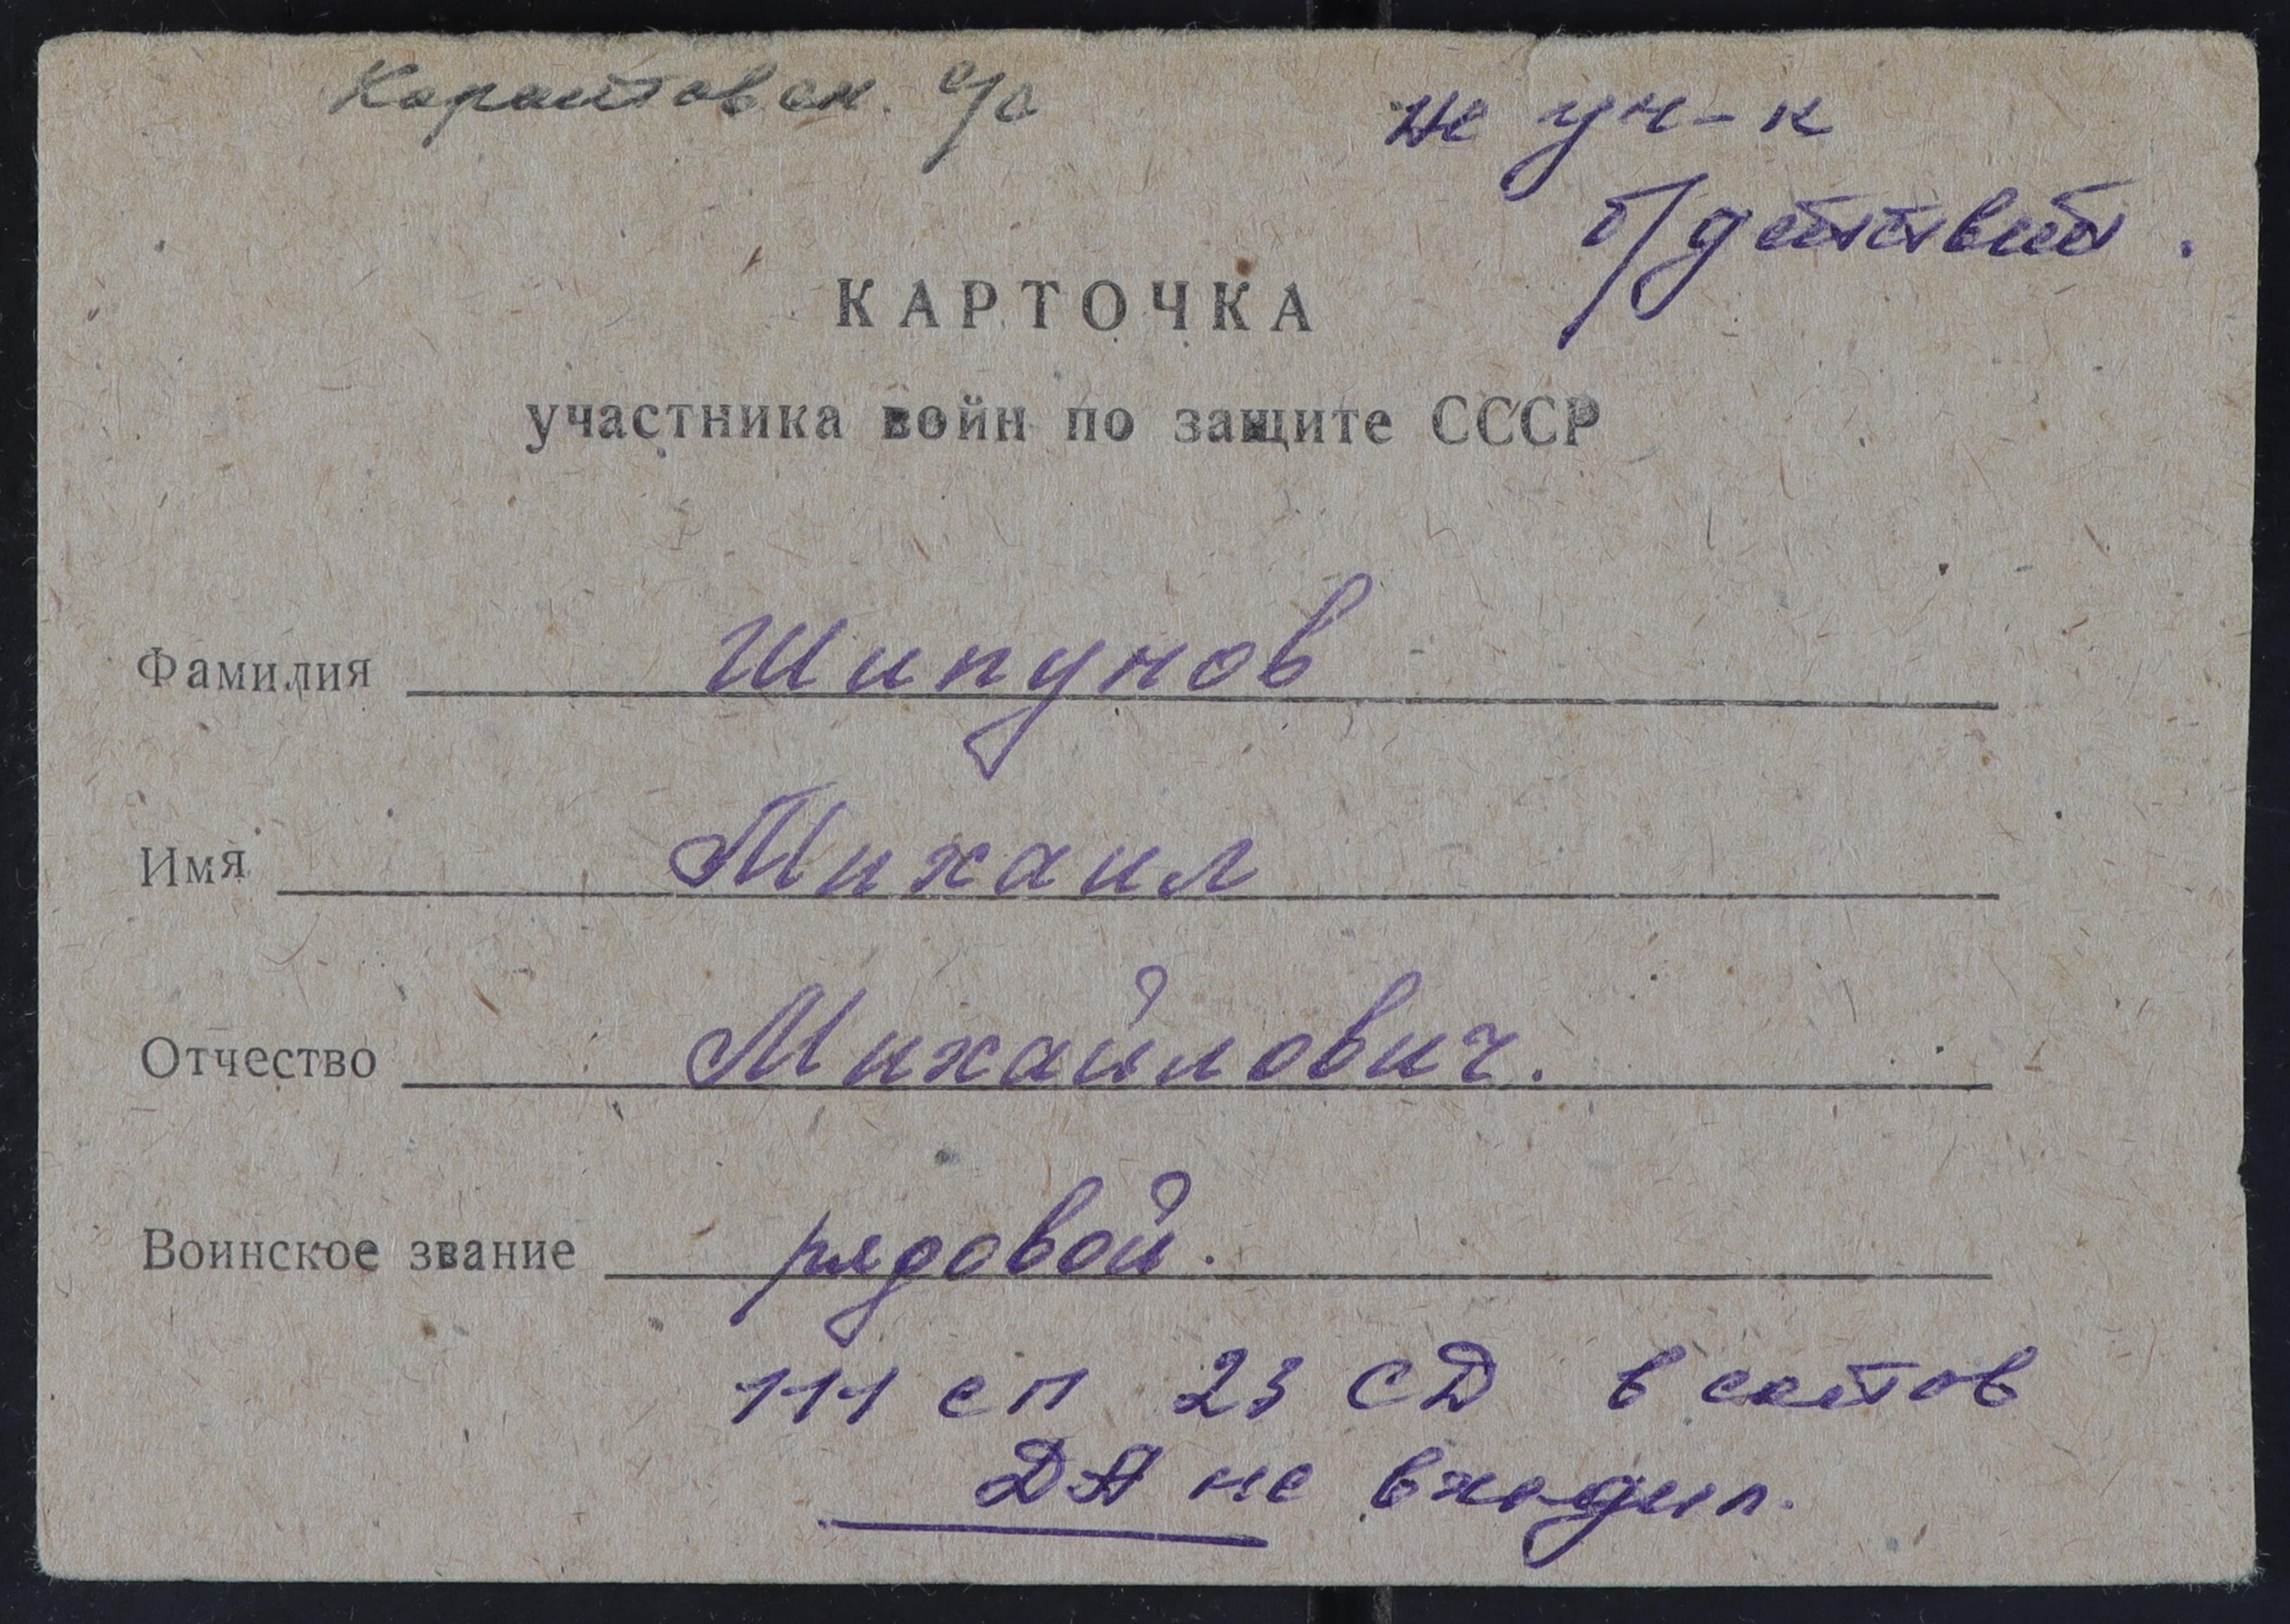 с/с
не уч-к
б/действий.
КАРТОЧКА
участника войн по защите СССР
Фамилия Шипунов
Имя Михаил
Отчество Михайлович.
Воинское звание рядовой.
111 сп 23 СД в состав
ДА не входил.